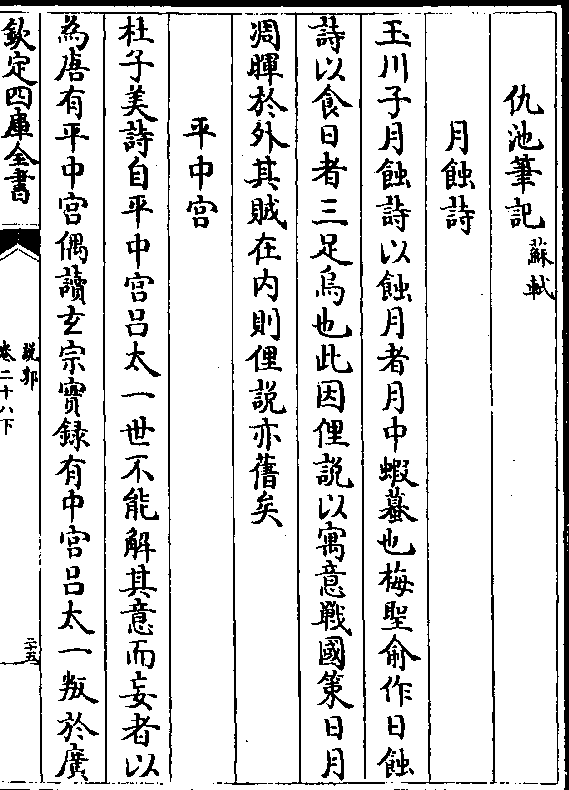 仇池筆記 蘇軾
月蝕詩
玉川子月蝕詩以蝕月者月中蝦蟇也梅聖俞作日蝕
詩以食日者三足烏也此因俚說以寓意戰國策日月
凋暉於外其賊在内則俚說亦舊矣
平中宫
杜子美詩自平中宫吕太一世不能解其意而妄者以
為唐有平中宫偶讀玄宗實録有中宫吕太一叛於廣
欽定四庫全書
說郛
卷二十八下
二十五